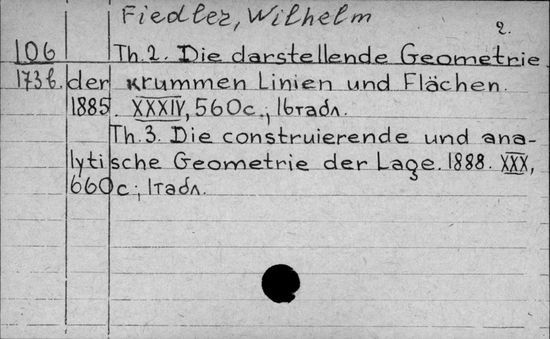 Fiedler, Wilhelm
2.
106 Th. 2. Die darstellende Geometrie
173б. der krummen Linien und Flächen.
1885. XXXIV, 560с., 16табл.
Th. 3. Die construierende und ana-
lytische Geometrie der Lage. 1888. XXX,
660с; 1табл.